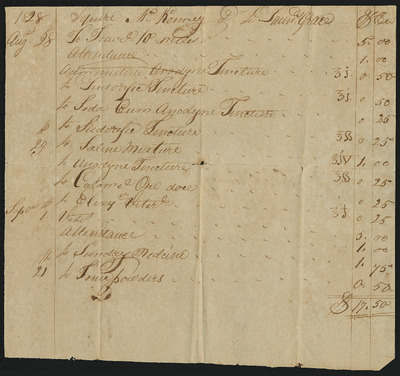 1828 Squire Mc Kenney $ Cts
Augt 28 To Travel 10 miles 5.00
Attendance 1.00
Administered Anodyne Tincture ʒi 0.50
to Sudorific Tincture ʒi 0.50
to Soda Cum Anodyne Tincture 0.25
" to Sudorific Tincture ʒss 0.25
29 to Saline Mixture ʒiv 1.00
to Anodyne Tincture ʒss 0.25
to Calomel One dose 0.25
to ʒi 0.25
1 Visit 5.00
Attendance 1.00
" to Sundry Medicine 1.75
21 to Tonic powders 0.50
$ 17.50